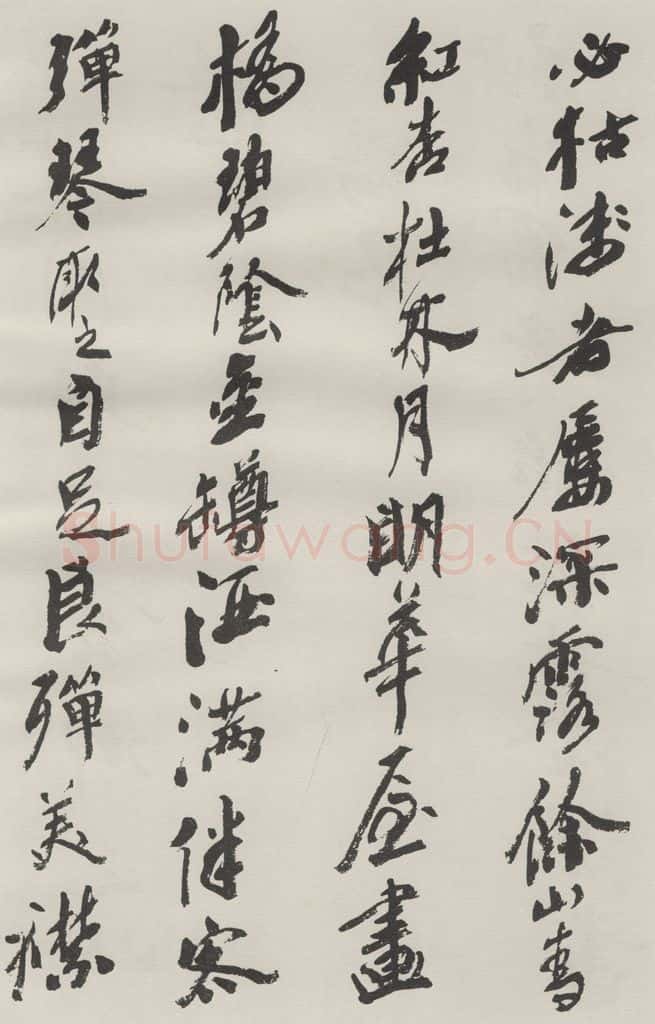 必枯淺者屢深露餘山青
紅杏杜林月明華屋畫
橋碧陰金罇酒滿伴客
彈琴取之自足良殫美襟
Shufawang.CN